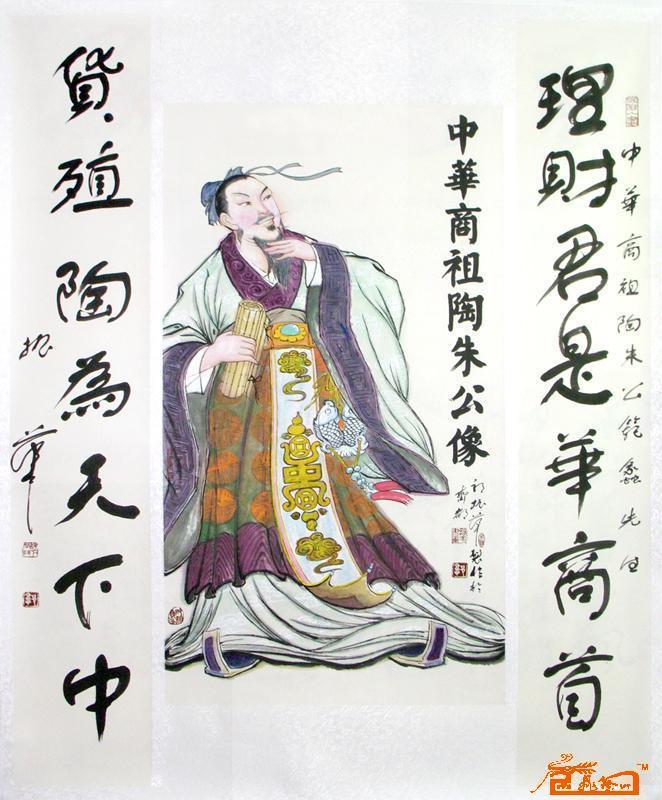 理財君是華商首
中華商祖陶朱公範蠡先生
中華商祖陶朱公像
貨殖陶為天下中
振華